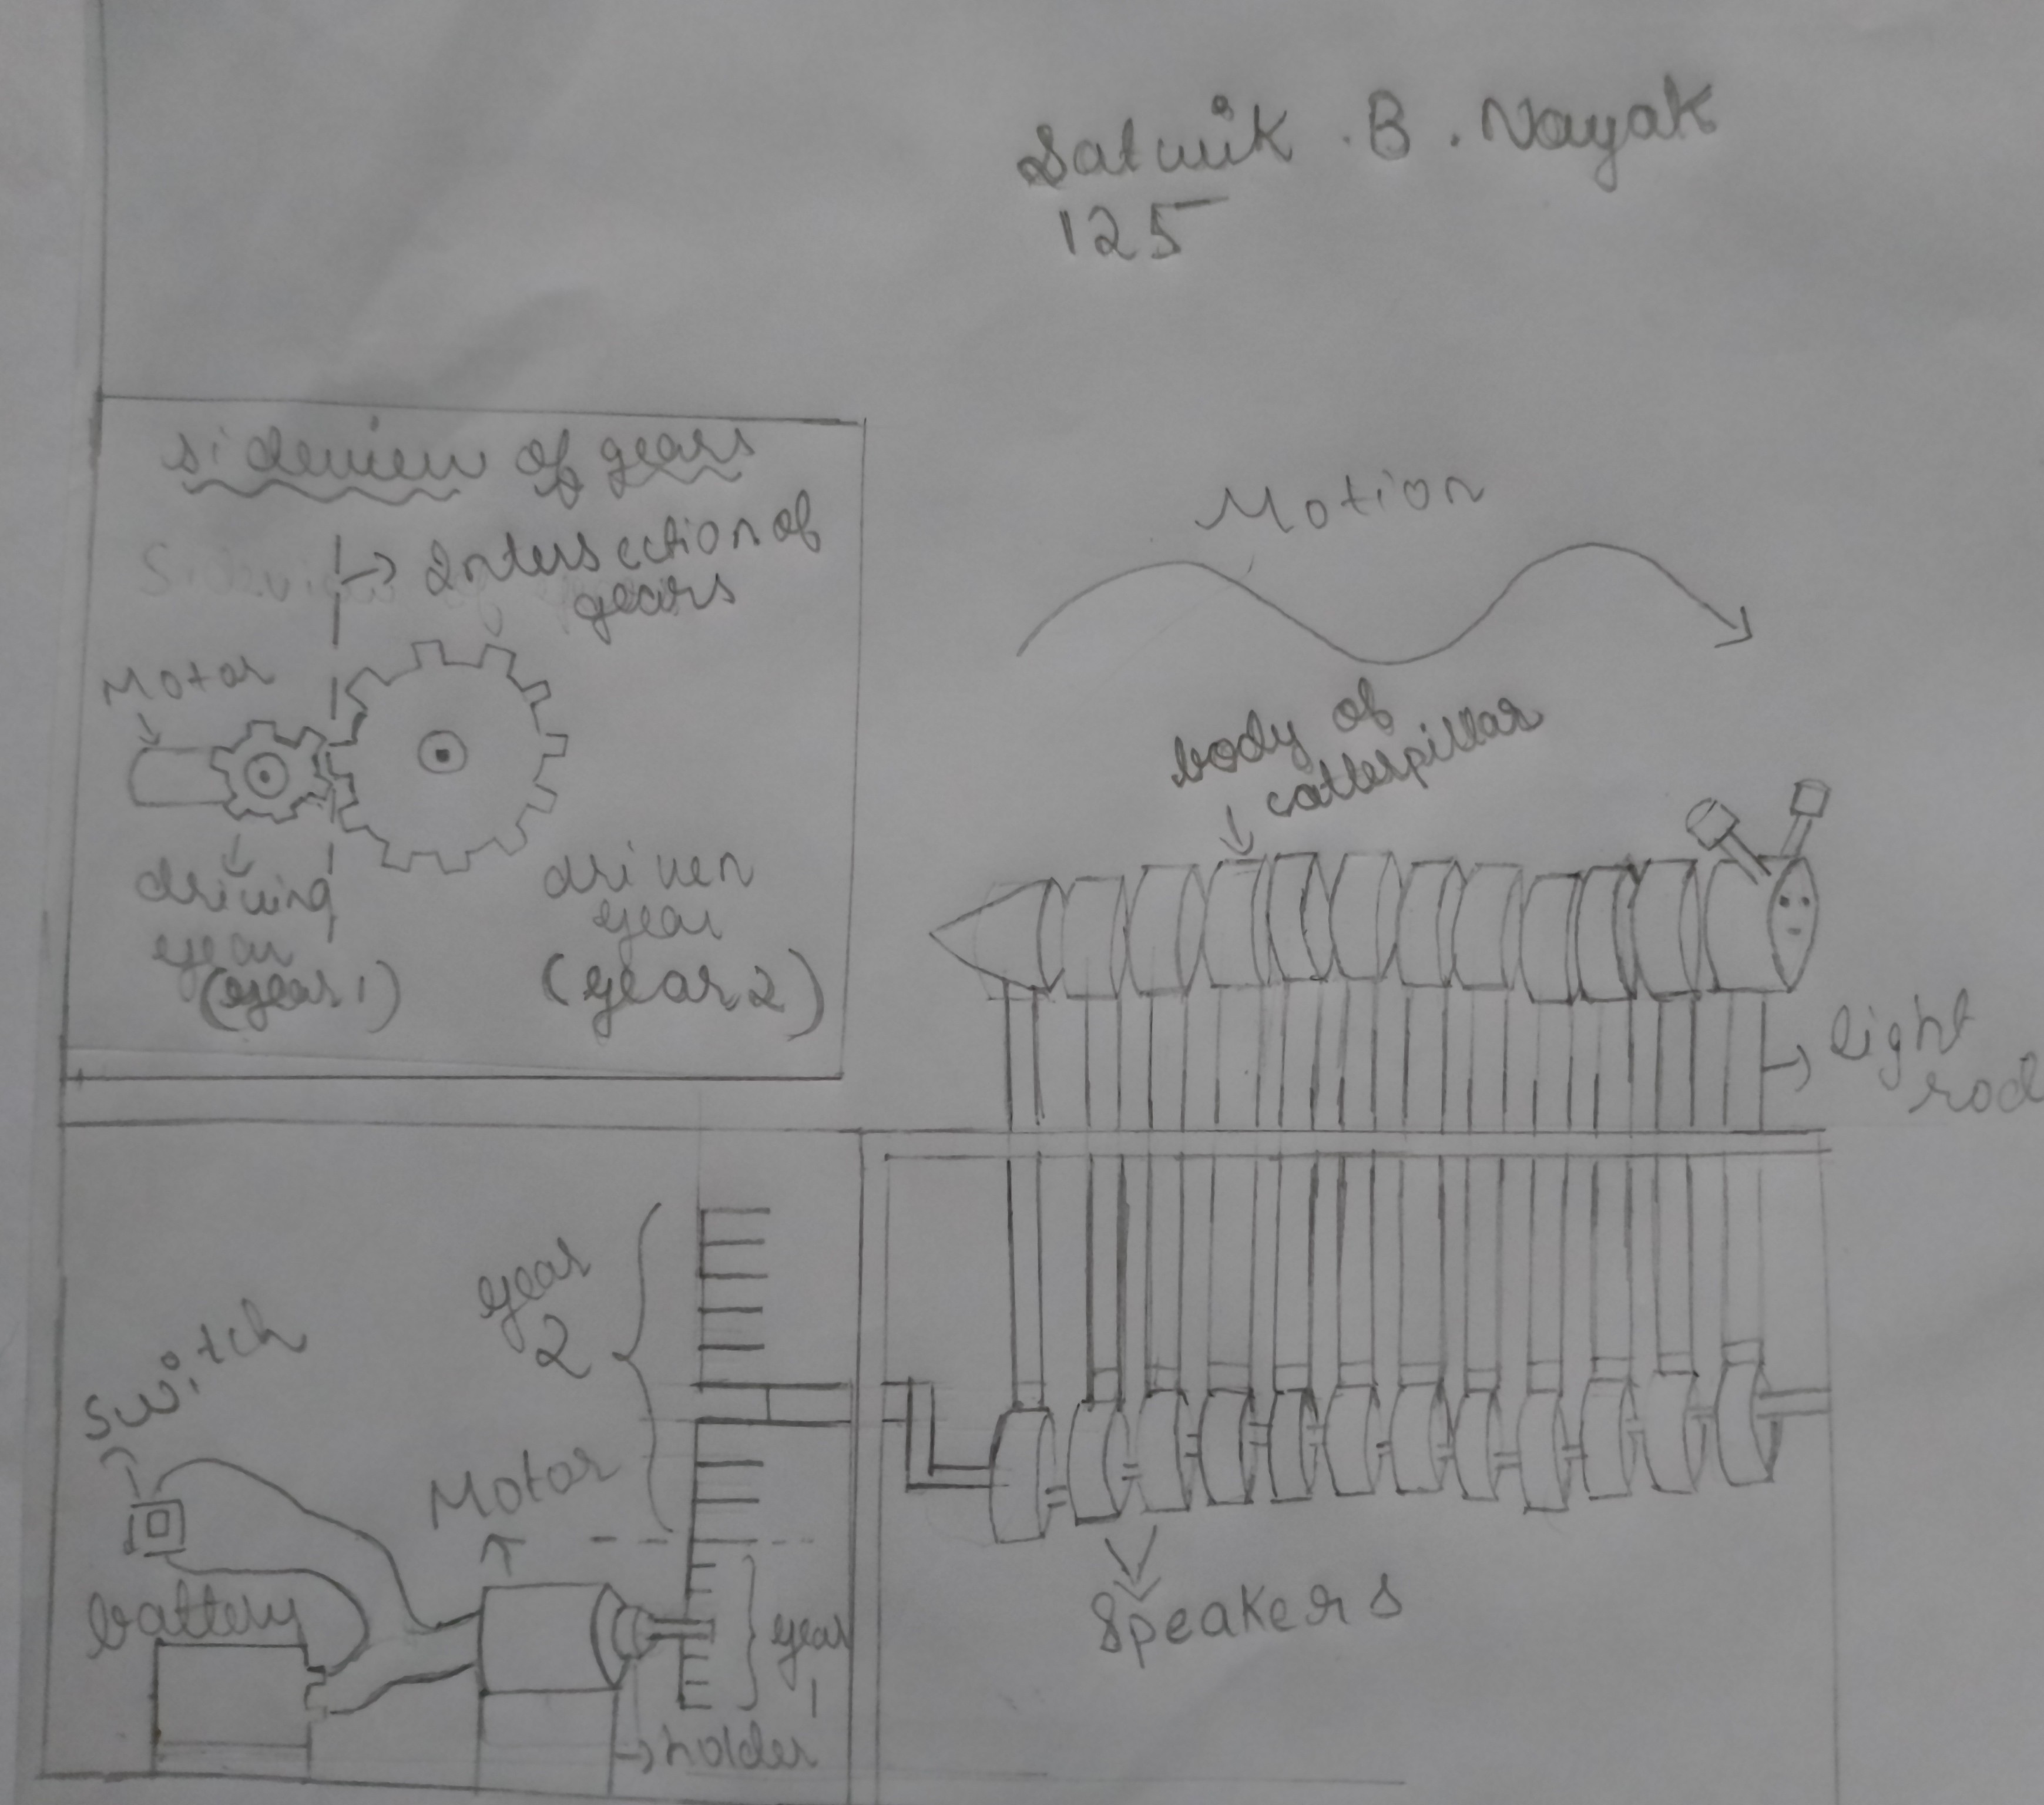 Satwik . B . Nayak
125
sideview of gears
Intersection of
gears
Motor
driving
gear
(gear 1)
driven
gear
(gear 2)
Motion
body of
catterpillar
light
rod
gear
2
switch
Motor
battery
gear
1
holder
Speakers